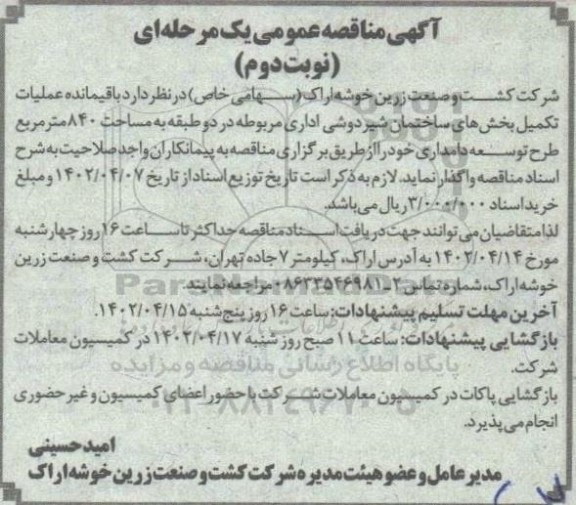 آگهی مناقصه عمومی یک مرحله‌ای
(نوبت دوم)
شرکت کشت و صنعت زرین خوشه اراک (سهامی خاص) در نظر دارد باقیمانده عملیات
تکمیل بخش‌های ساختمان شیردوشی اداری مربوطه در دو طبقه به مساحت ۸۴۰ متر مربع
طرح توسعه دامداری خود را از طریق برگزاری مناقصه به پیمانکاران واجد صلاحیت به شرح
اسناد مناقصه واگذار نماید. لازم به ذکر است تاریخ توزیع اسناد از تاریخ ۱۴۰۲/۰۴/۰۷ و مبلغ
خرید اسناد ۳/۰۰۰/۰۰۰ ریال می‌باشد.
لذا متقاضیان می‌توانند جهت دریافت اسناد مناقصه حداکثر تا ساعت ۱۶ روز چهارشنبه
مورخ ۱۴۰۲/۰۴/۱۴ به آدرس اراک، کیلومتر ۷ جاده تهران، شرکت کشت و صنعت زرین
خوشه اراک، شماره تماس ۲-۰۸۶۳۳۵۴۶۹۸۱ مراجعه نمایند.
آخرین مهلت تسلیم پیشنهادات: ساعت ۱۶ روز پنج شنبه ۱۴۰۲/۰۴/۱۵.
بازگشایی پیشنهادات: ساعت ۱۱ صبح روز شنبه ۱۴۰۲/۰۴/۱۷ در کمیسیون معاملات
شرکت.
بازگشایی پاکات در کمیسیون معاملات شرکت با حضور اعضای کمیسیون و غیر حضوری
انجام می‌پذیرد.
امید حسینی
مدیر عامل و عضو هیئت مدیره شرکت کشت و صنعت زرین خوشه اراک
ParsNamadData
پایگاه اطلاع رسانی مناقصه و مزایده
۰۲۱-۸۸۳۴۹۶۷۰-۵